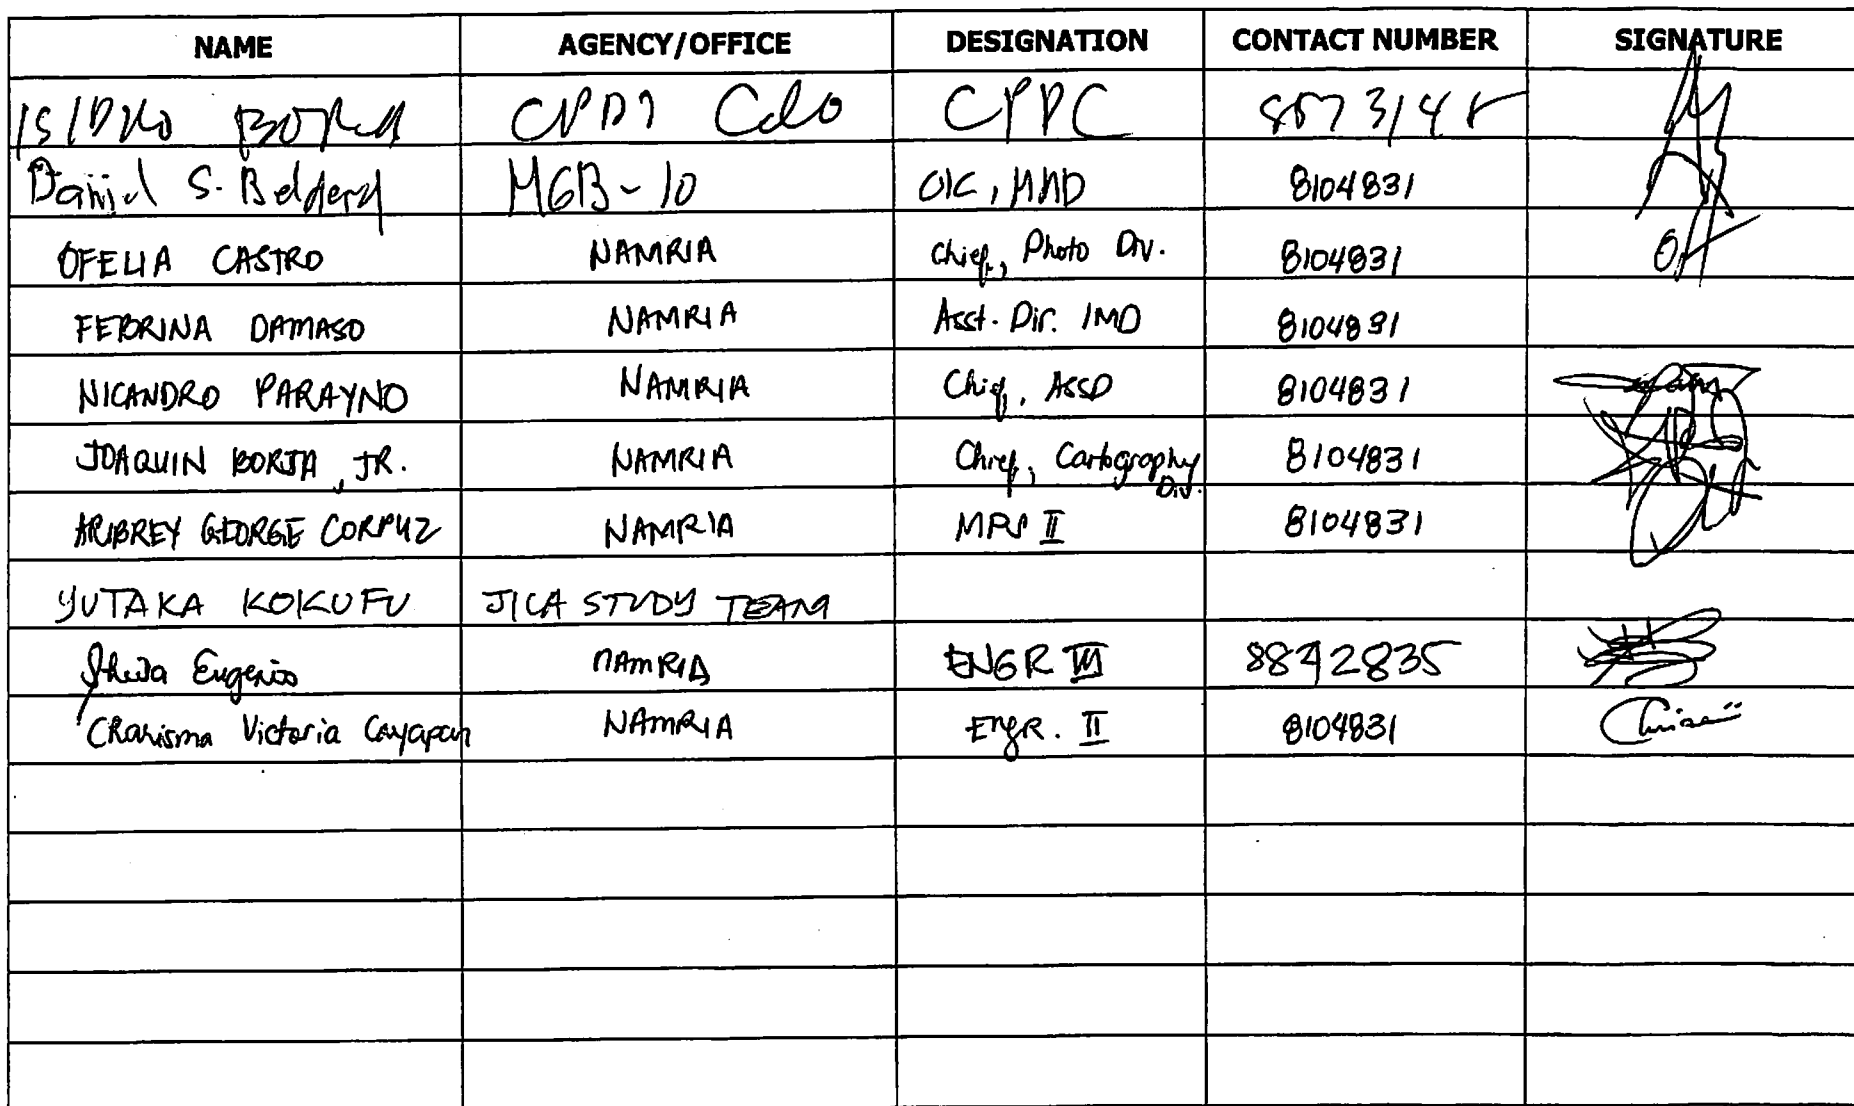 NAME AGENCY/OFFICE DESIGNATION CONTACT NUMBER SIGNATURE
CPDO CDO CPDC
Daniel S. MGB-10 OIC, 8104831
OFELIA CASTRO NAMRIA Chief, Photo Div. 8104831
FEBRINA DAMASO NAMRIA Asst. Dir. IMD 8104831
NICANDRO PARAYNO NAMRIA Chief, ASSD 8104831
JOAQUIN BORJA, JR. NAMRIA Chief, Cartography Div. 8104831
GEORGE CORPUZ NAMRIA II 8104831
YUTAKA KOKUFU JICA STUDY TEAM
Sheila Eugenio NAMRIA ENGR III 8842835
Charisma Victoria Cayapan NAMRIA Engr. II 8104831